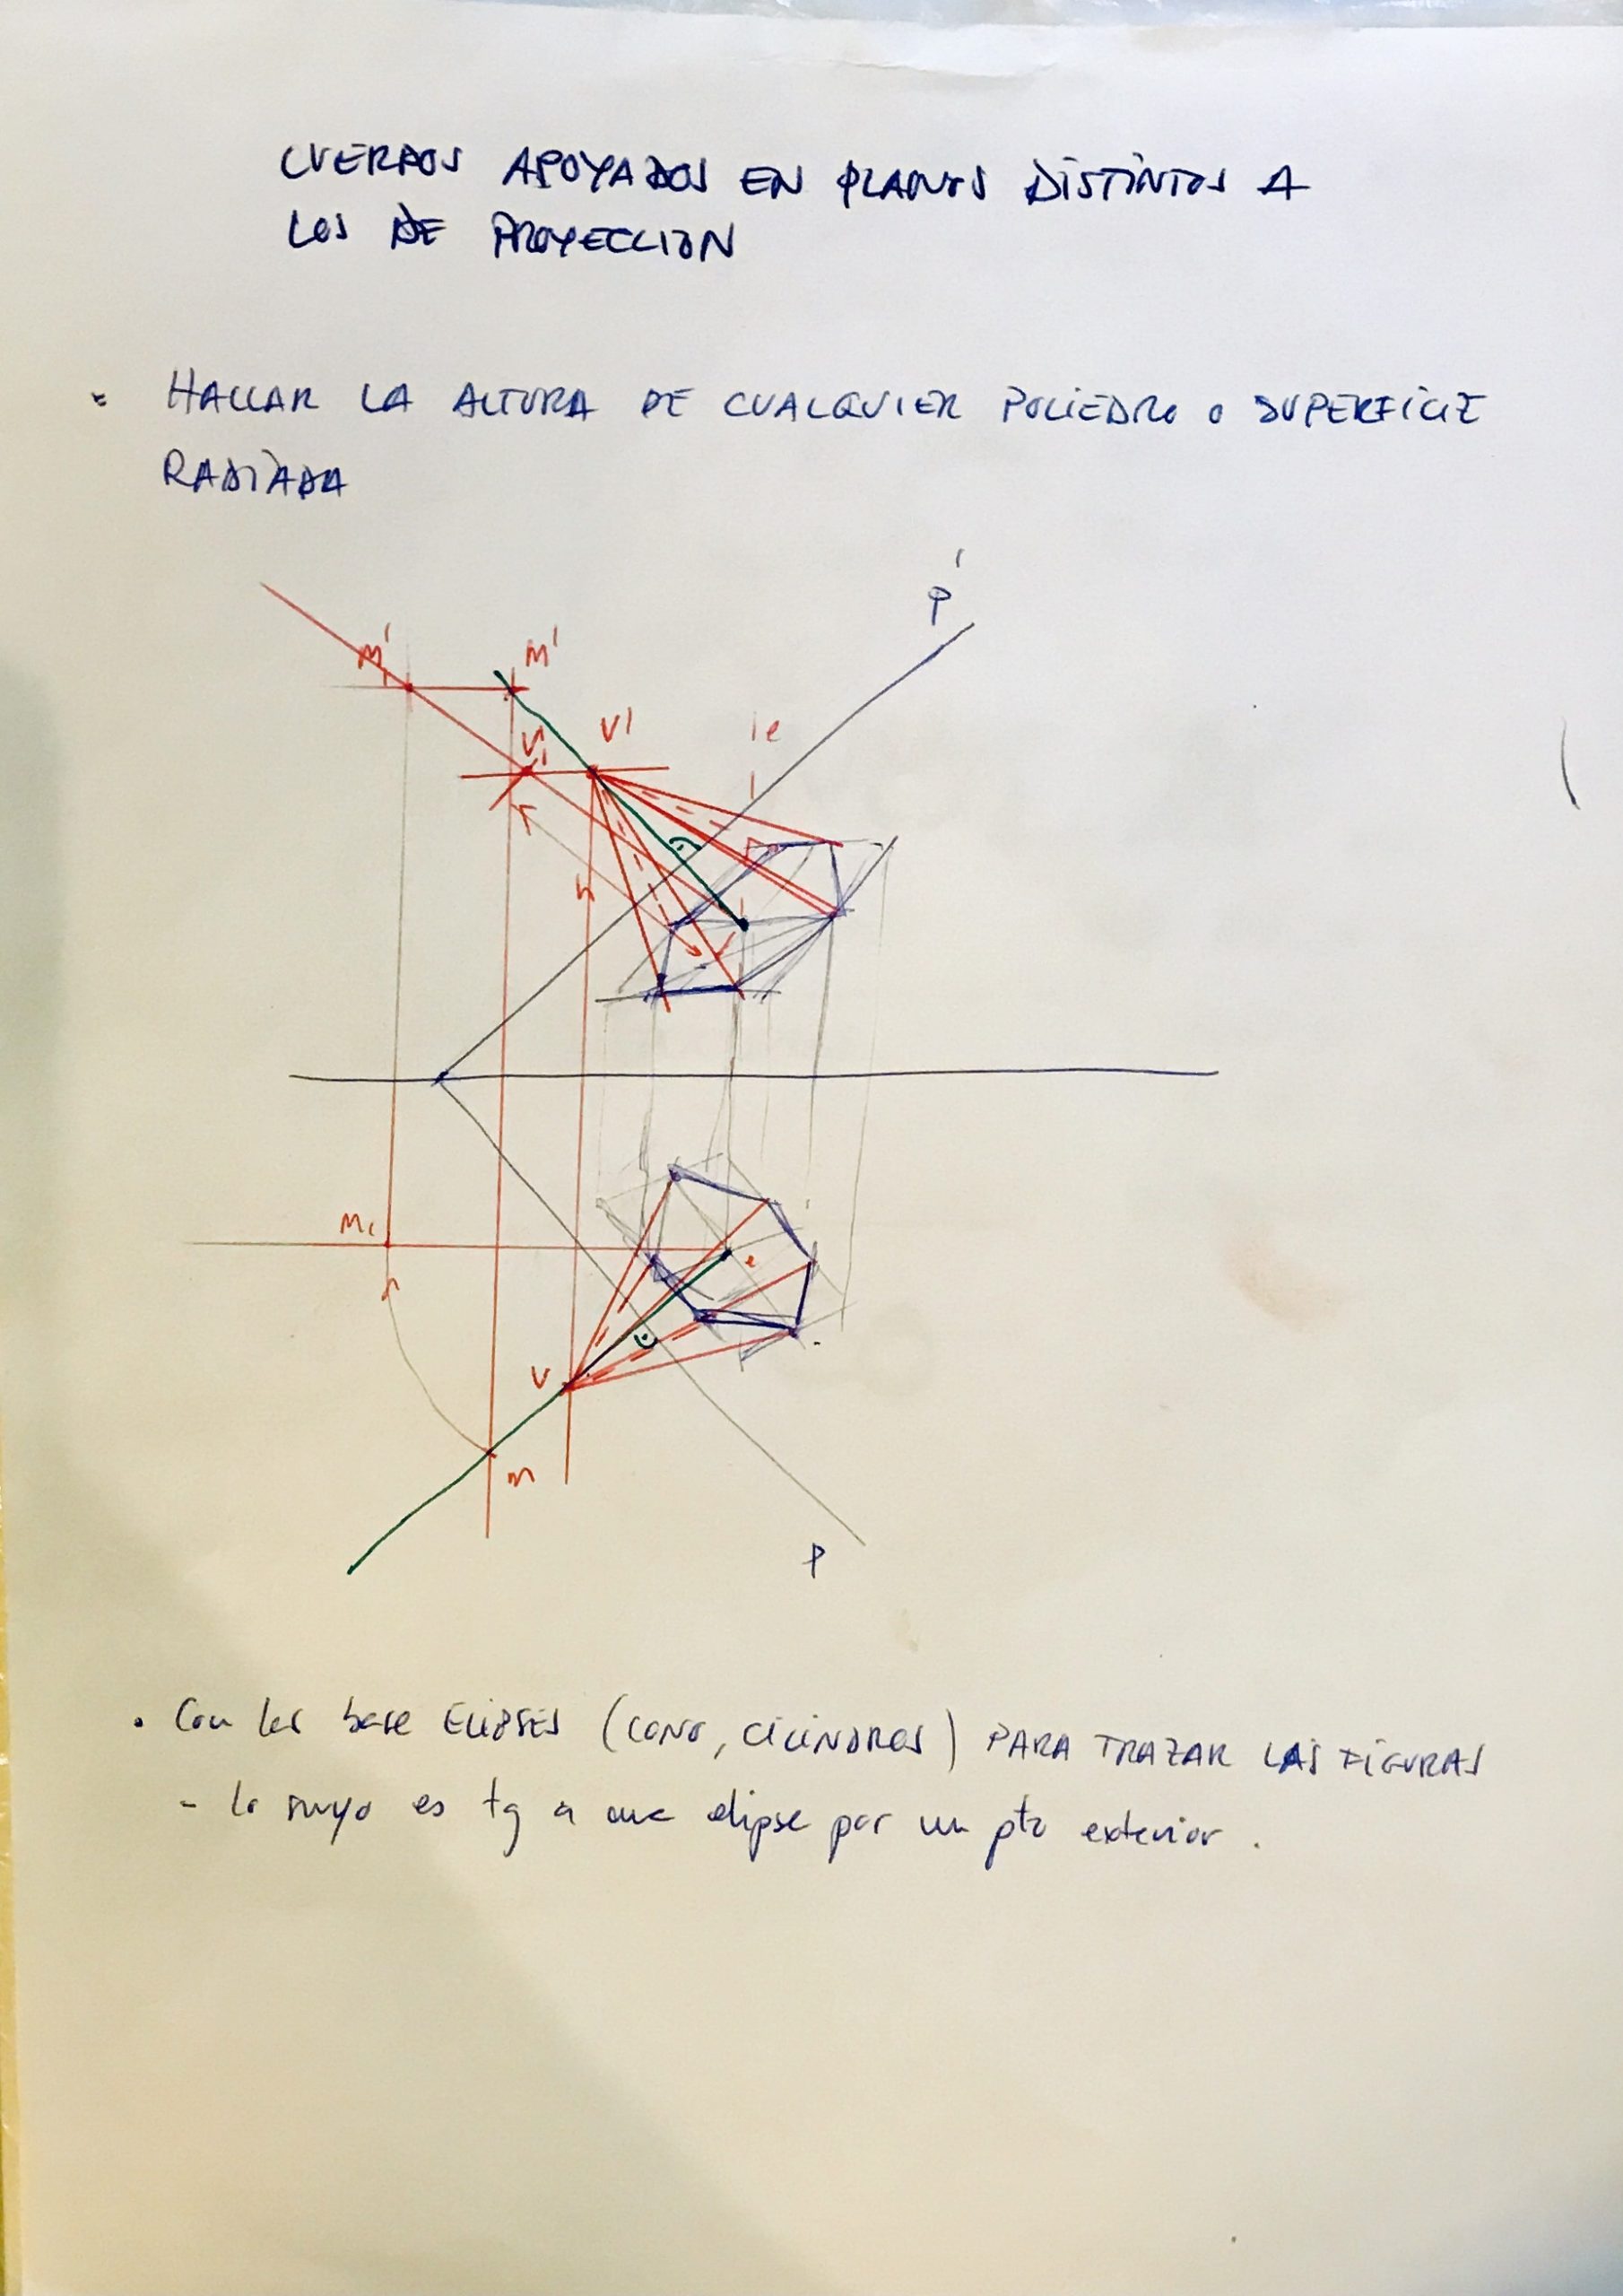 CUERPOS APOYADOS EN PLANOS DISTINTOS A
LOS DE PROYECCION
HALLAR LA ALTURA DE CUALQUIER POLIEDRO O SUPERFICIE
RADIADA
P'
M'₁
M'
V'₁
V'
e
h
M₁
e
V
m
P
. Con las base ELIPSES (CONO, CILINDROS) PARA TRAZAR LAS FIGURAS
- lo suyo es tg a una elipse por un pto exterior.